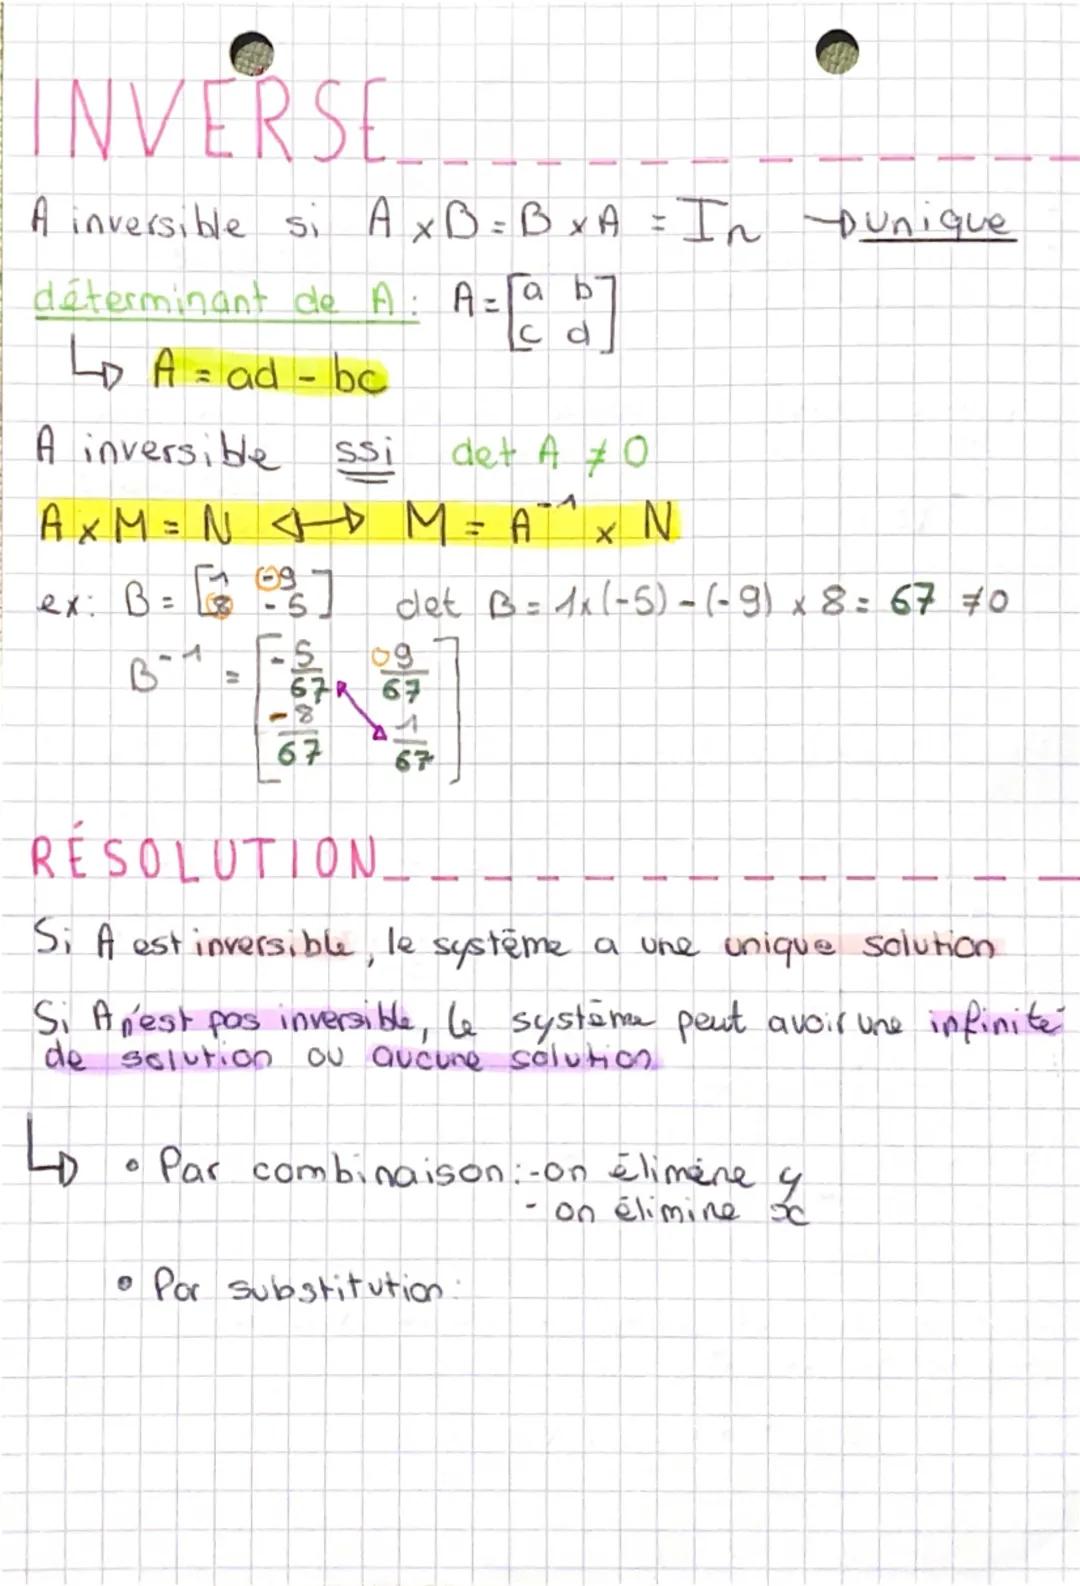 INVERSE
A inversible si A x B = B x A = In → unique
déterminant de A : A = [a b
c d]
↳ A = ad - bc
A inversible ssi det A ≠ 0
A x M = N ↔ M = A⁻¹ x N
ex: B = [1 -9
8 -5] det B = 1x(-5) - (-9) x 8 = 67 ≠ 0
B⁻¹ = [-5/67 9/67
-8/67 1/67]
RÉSOLUTION
Si A est inversible, le système a une unique solution
Si A n'est pas inversible, le système peut avoir une infinité
de solution ou aucune solution
↳ • Par combinaison : - on élimine y
- on élimine x
• Par substitution :